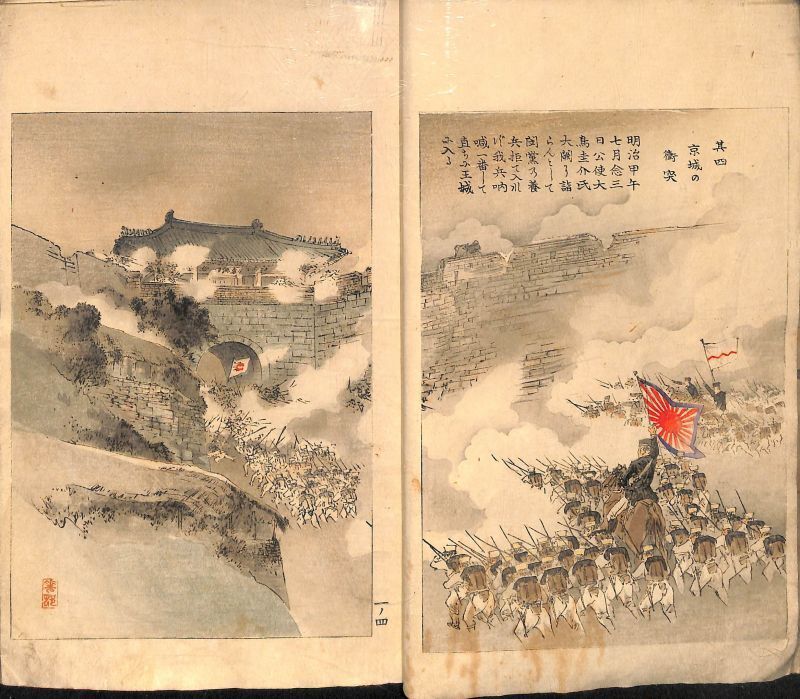 其四
京城の
衝突
明治甲午
七月念三
日公使大
鳥圭介氏
大闕に詣
らんとして
閔黨の養
兵拒て入れ
ず我兵吶
喊一番して
直ちに王城
に入る
一ノ四